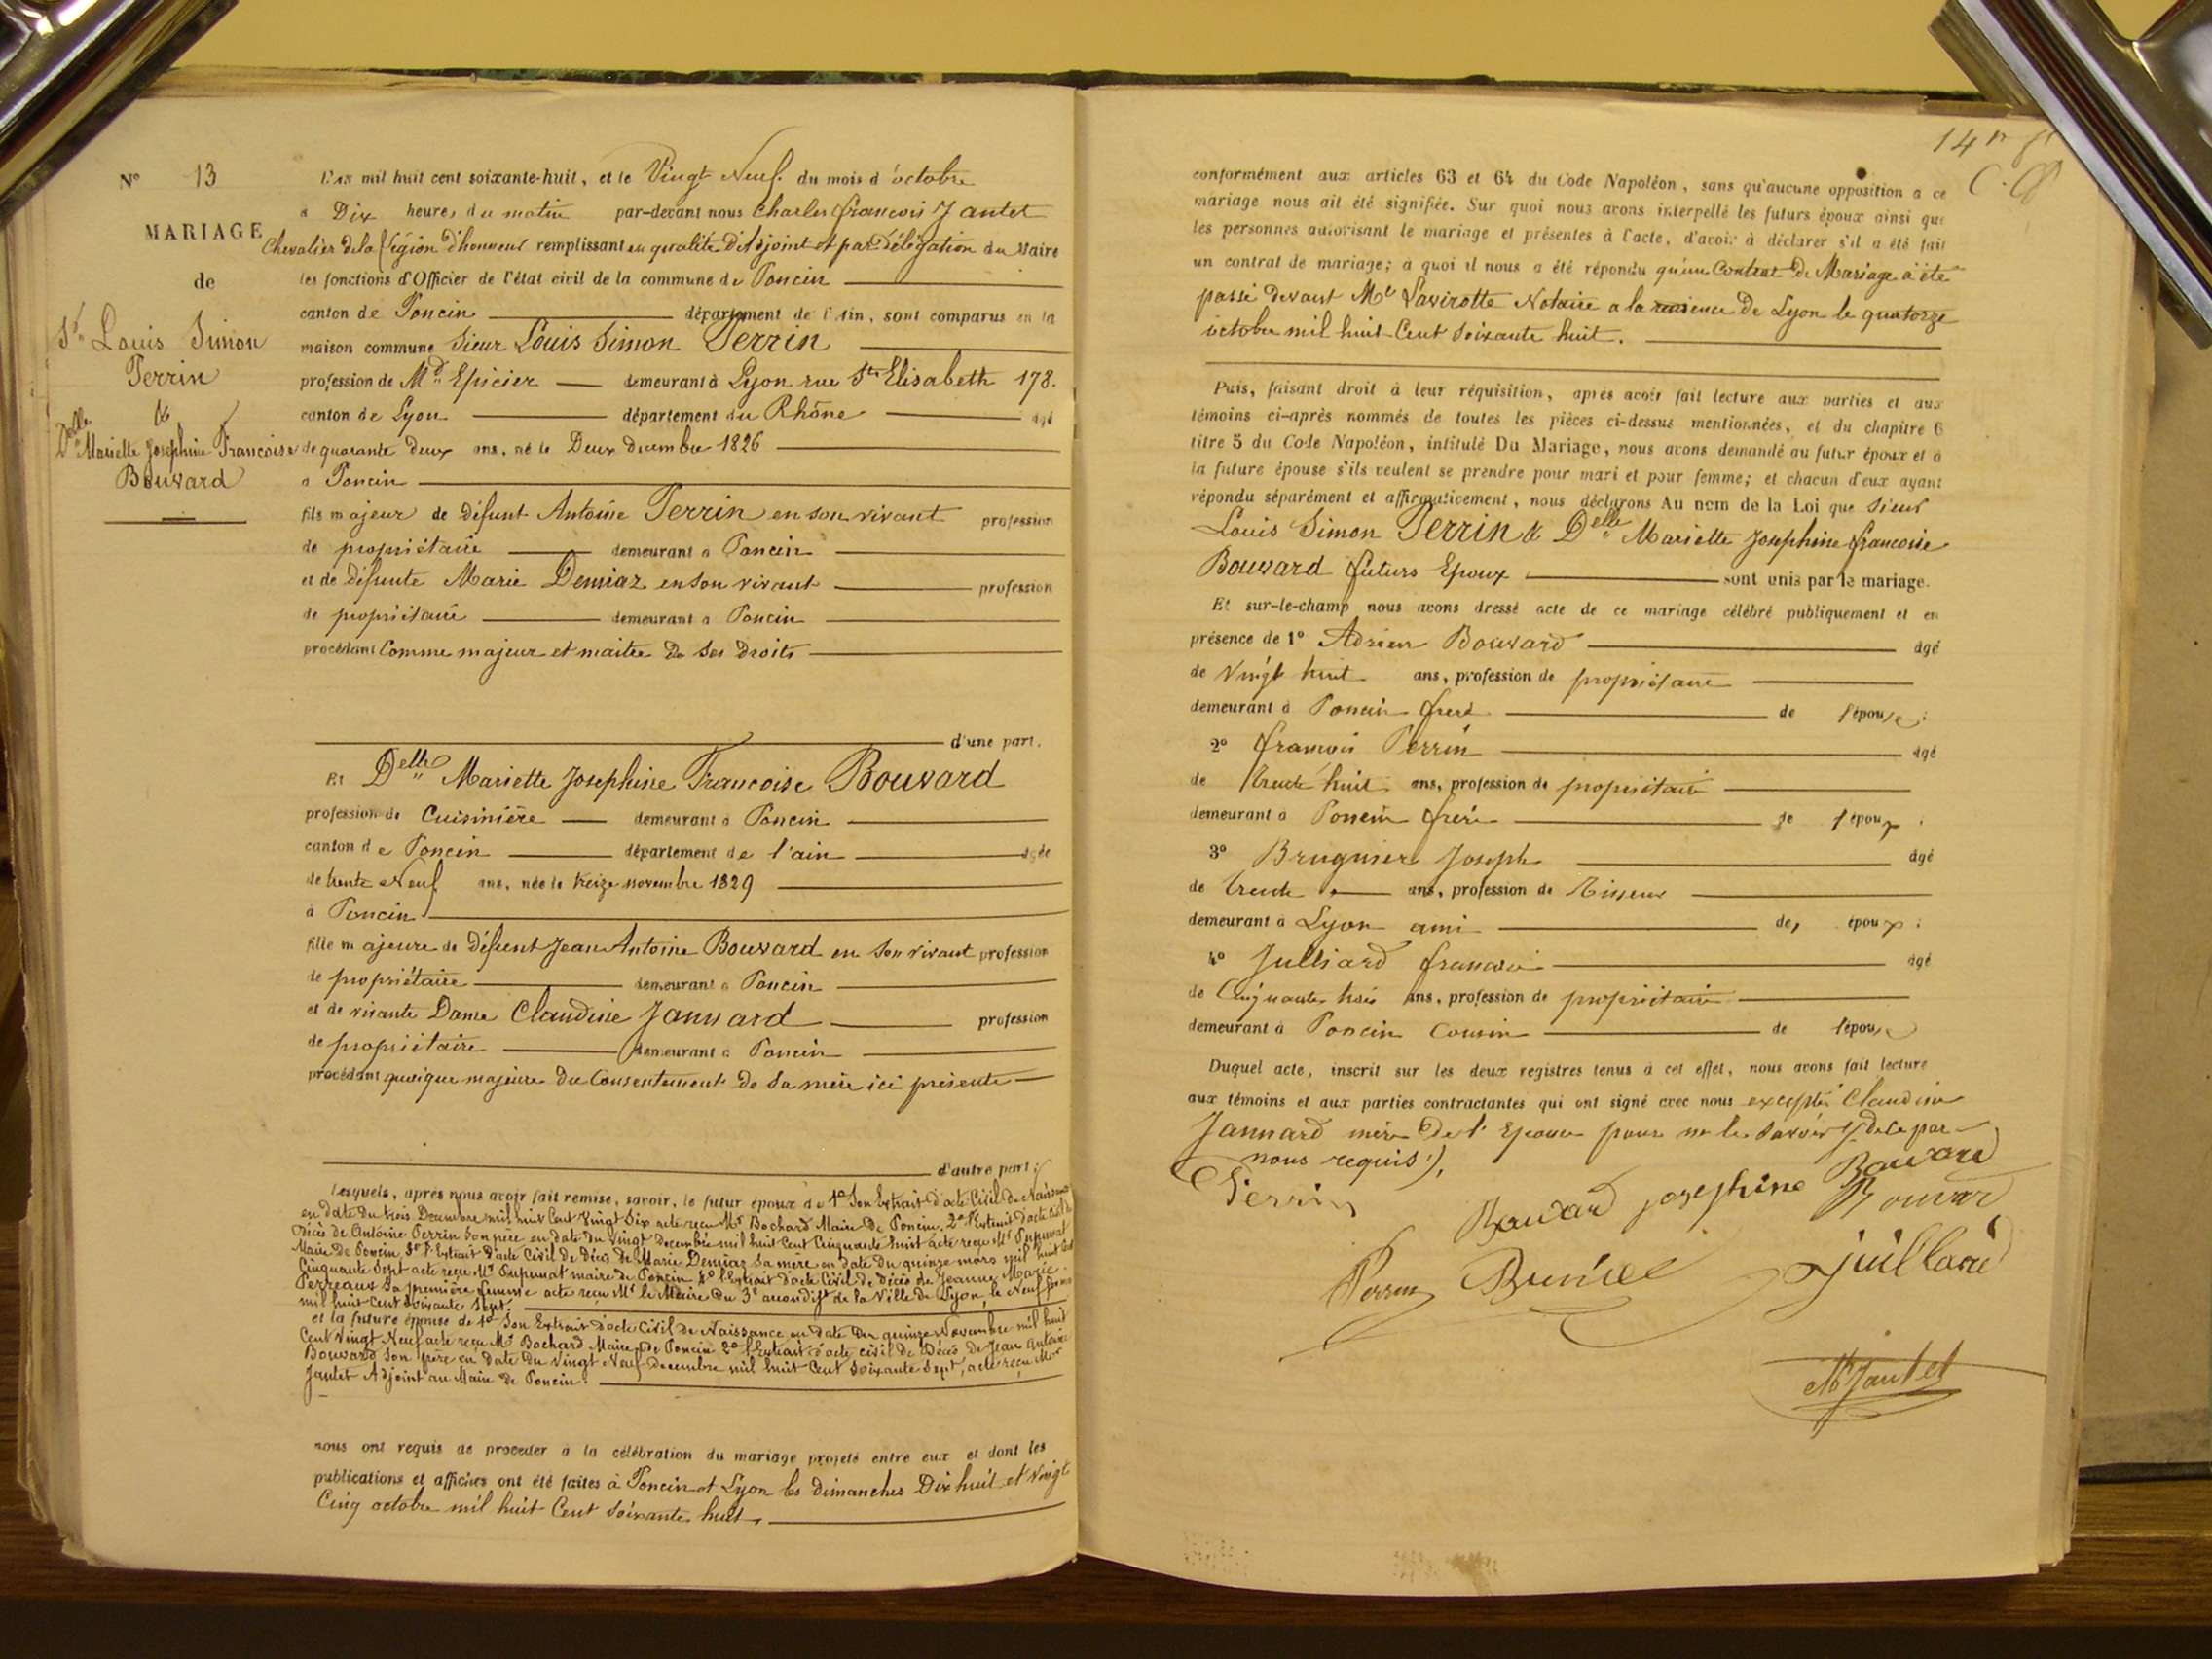 N° 13
MARIAGE
de
Sr Louis Simon
Perrin
&
Delle Mariette Josephine Francoise
Bouvard
L'an mil huit cent soixante-huit, et le Vingt Neuf du mois d'octobre
à Dix heures du matin par-devant nous Charles françois Jantet
Chevalier de la Légion d'honneur remplissant en qualité d'Adjoint et par délégation du Maire
les fonctions d'Officier de l'état civil de la commune de Poncin
canton de Poncin département de l'Ain, sont comparus en la
maison commune Sieur Louis Simon Perrin
profession de Md Epicier demeurant à Lyon rue Ste Elisabeth 178.
canton de Lyon département du Rhône agé
de quarante deux ans, né le Deux decembre 1826
à Poncin
fils majeur de défunt Antoine Perrin en son vivant profession
de propriétaire demeurant à Poncin
et de défunte Marie Demiaz en son vivant profession
de propriétaire demeurant à Poncin
procédant Comme majeur et maitre de ses droits
d'une part,
Et Delle Mariette Josephine Francoise Bouvard
profession de Cuisinière demeurant à Poncin
canton de Poncin département de l'ain agée
de trente Neuf ans, née le treize novembre 1829
à Poncin
fille majeure de défunt Jean Antoine Bouvard en son vivant profession
de propriétaire demeurant à Poncin
et de vivante Dame Claudine Janvard profession
de propriétaire demeurant à Poncin
procédant quoique majeure du Consentement de sa mère ici présente
d'autre part;
lesquels, après nous avoir fait remise, savoir, le futur époux de 1° Son Extrait d'acte Civil de Naissance
en date du trois Decembre mil huit Cent Vingt Six acte reçu Mr Bochard Maire de Poncin, 2° l'Extrait d'acte Civil de
Décès de Antoine Perrin son père en date du Vingt Decembre mil huit Cent Cinquante huit acte reçu Mr
Maire de Poncin, 3° l'Extrait d'acte Civil de Décès de Marie Demiaz sa mère en date du quinze mars mil huit Cent
Cinquante Sept acte reçu Mr maire de Poncin 4° l'Extrait d'acte Civil de Décès de Jeanne Marie
Perreaux sa première femme acte reçu Mr le Maire du 3e arrondist de la Ville de Lyon, le Neuf
mil huit Cent Soixante Sept.
et la future épouse de 1° Son Extrait d'acte Civil de Naissance en date du quinze Novembre mil huit
Cent Vingt Neuf acte reçu Mr Bochard Maire de Poncin 2° l'Extrait d'acte civil de Décès de Jean Antoine
Bouvard son père en date du Vingt Neuf Decembre mil huit Cent Soixante Sept, acte reçu Mr
Jantet Adjoint au Maire de Poncin.
nous ont requis de procéder à la célébration du mariage projeté entre eux et dont les
publications et affiches ont été faites à Poncin et Lyon les dimanches Dix huit et Vingt
Cinq octobre mil huit Cent Soixante huit.
14
conformément aux articles 63 et 64 du Code Napoléon, sans qu'aucune opposition à ce
mariage nous ait été signifiée. Sur quoi nous avons interpellé les futurs époux ainsi que
les personnes autorisant le mariage et présentes à l'acte, d'avoir à déclarer s'il a été fait
un contrat de mariage; à quoi il nous a été répondu qu'un Contrat de Mariage à été
passé devant Me Lavirotte Notaire a la de Lyon le quatorze
octobre mil huit Cent Soixante huit.
Puis, faisant droit à leur réquisition, après avoir fait lecture aux parties et aux
témoins ci-après nommés de toutes les pièces ci-dessus mentionnées, et du chapitre 6
titre 5 du Code Napoléon, intitulé Du Mariage, nous avons demandé au futur époux et à
la future épouse s'ils veulent se prendre pour mari et pour femme; et chacun d'eux ayant
répondu séparément et affirmativement, nous déclarons Au nom de la Loi que Sieur
Louis Simon Perrin & Delle Mariette Josephine francoise
Bouvard futurs Epoux sont unis par le mariage.
Et sur-le-champ nous avons dressé acte de ce mariage célébré publiquement et en
présence de 1° Adrien Bouvard agé
de Vingt huit ans, profession de propriétaire
demeurant à Poncin frere de l'épouse;
2° francois Perrin agé
de trente huit ans, profession de propriétaire
demeurant à Poncin frère de l'époux;
3° Brugnier Joseph agé
de trente ans, profession de Tisseur
demeurant à Lyon ami de l'époux;
4° Julliard francois agé
de Cinquante trois ans, profession de propriétaire
demeurant à Poncin Cousin de l'épouse
Duquel acte, inscrit sur les deux registres tenus à cet effet, nous avons fait lecture
aux témoins et aux parties contractantes qui ont signé avec nous excepté Claudine
Janvard mère de l'Epouse pour ne le savoir de ce par
nous requis.
Perrin
Bouvard josephine
Bouvard
Bouvard
Perrin
juillard
Jantet